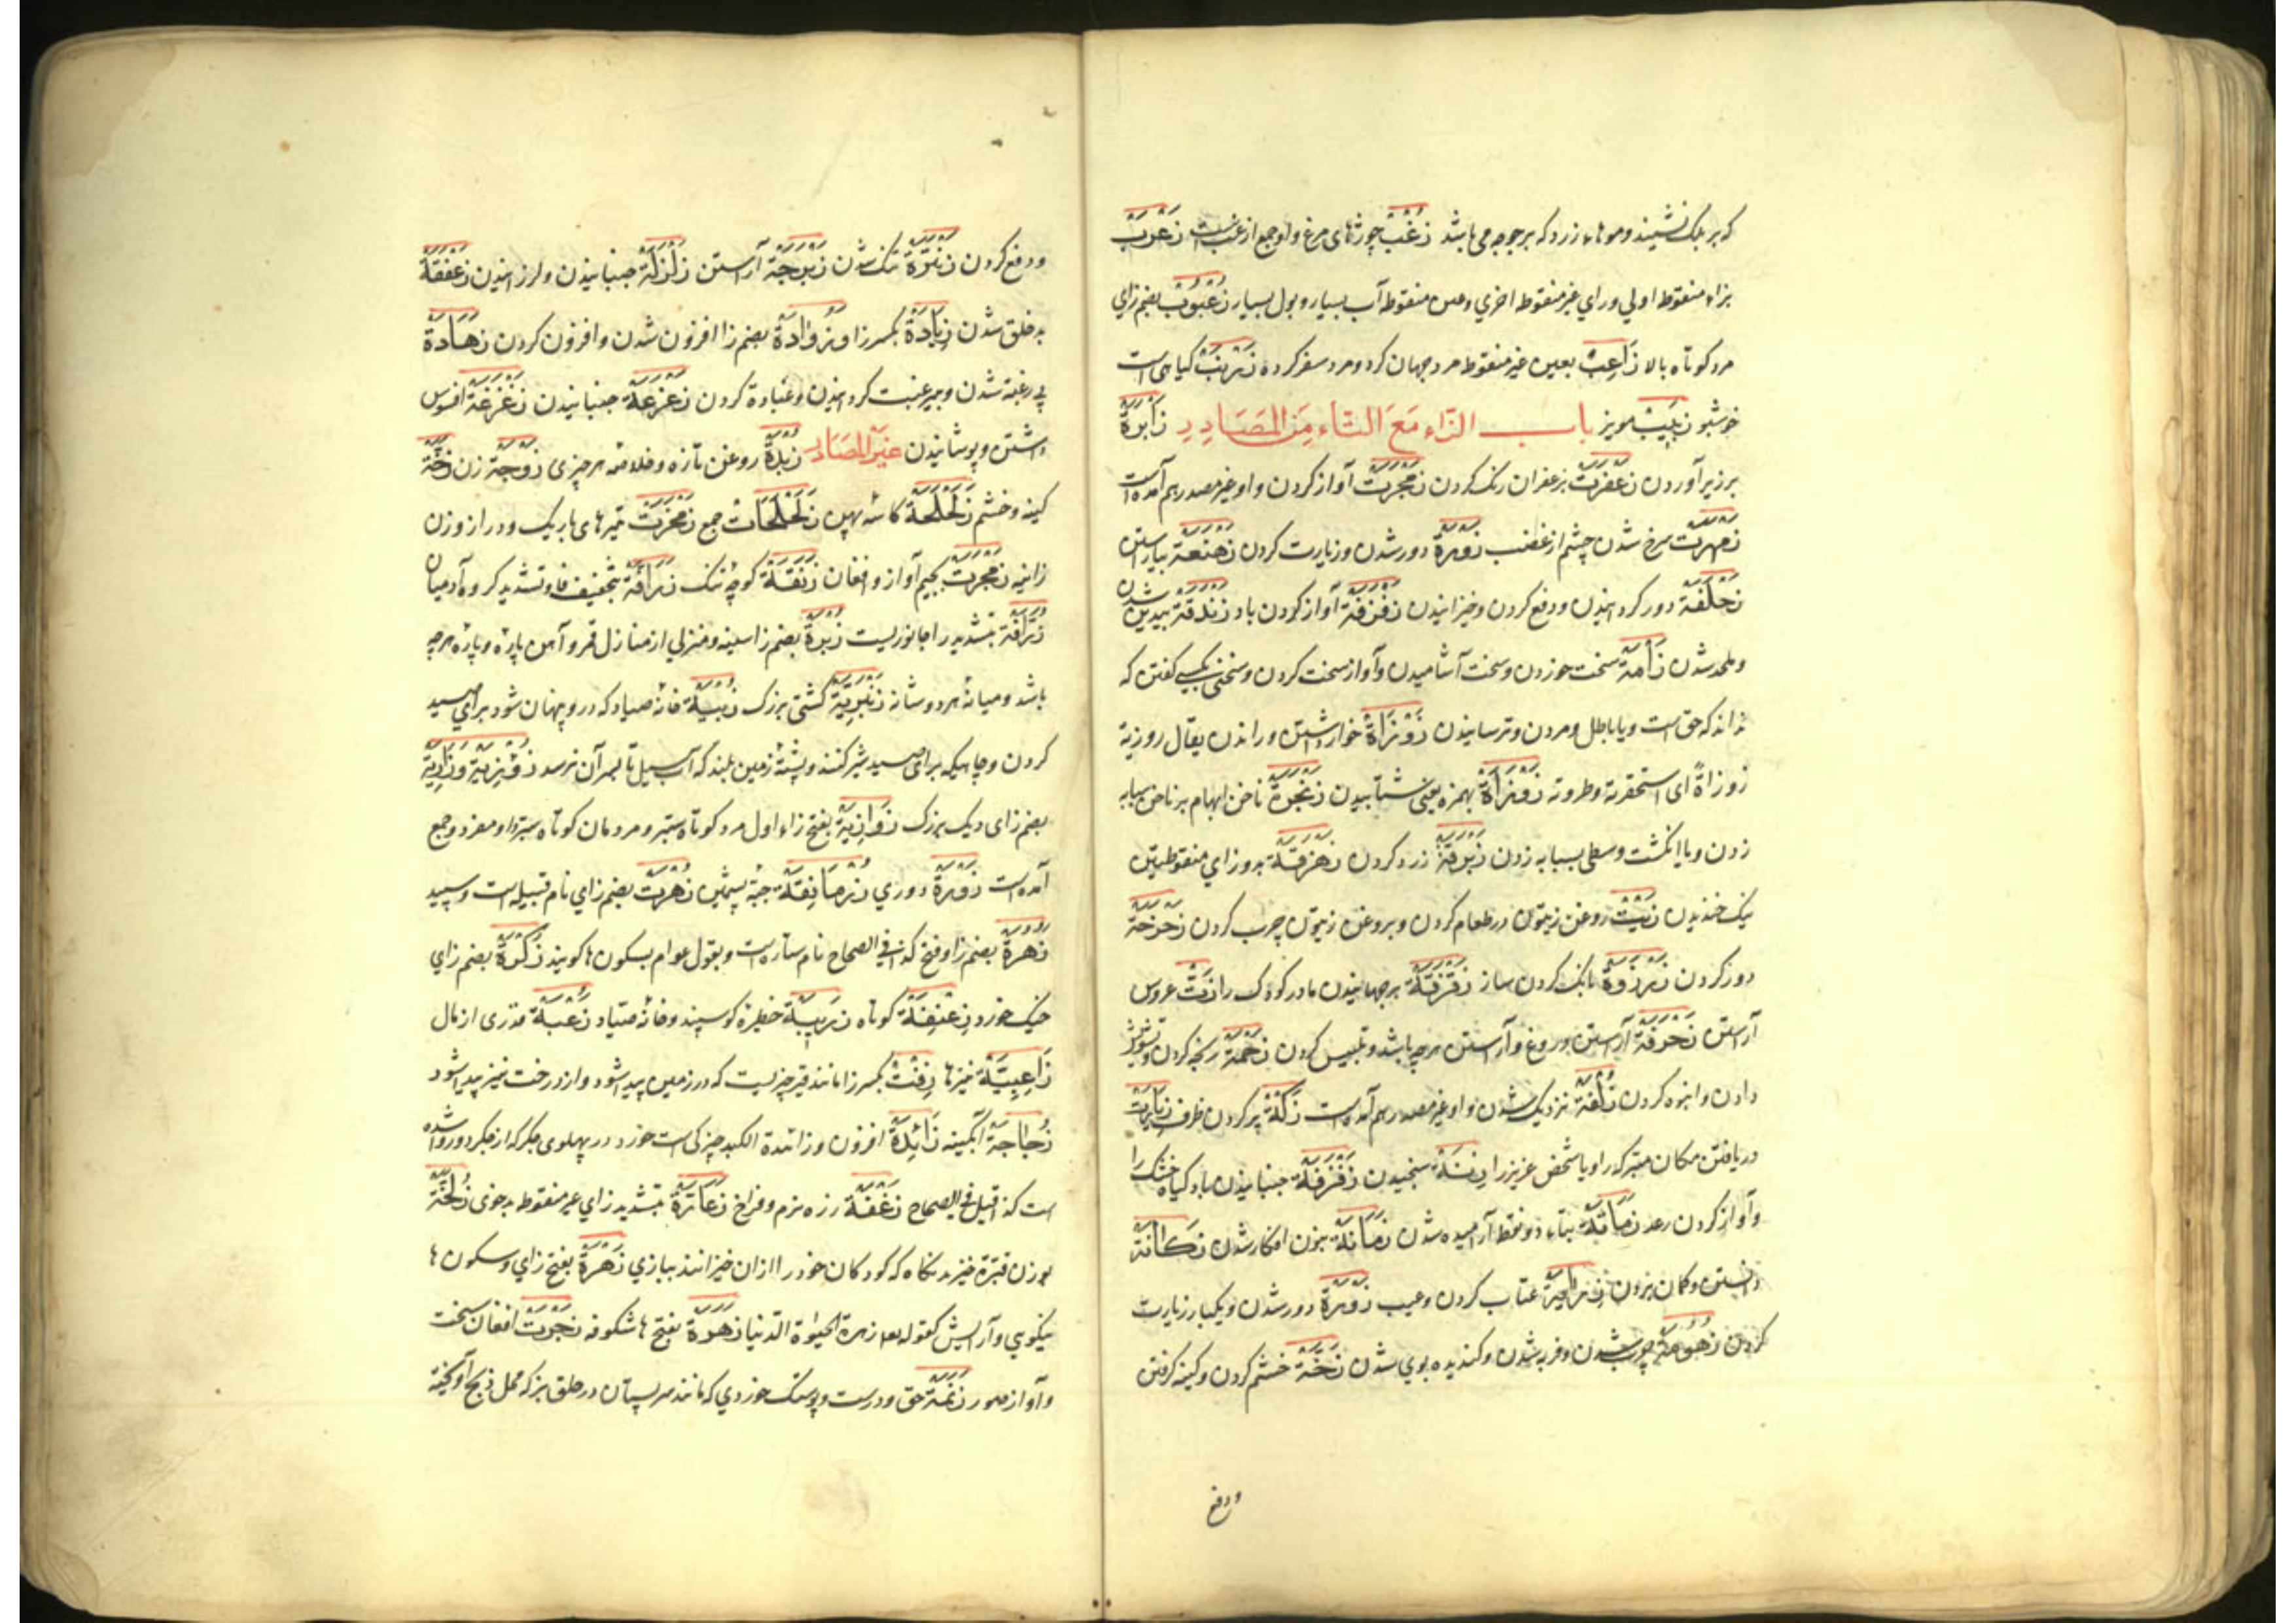 که بر پلک نشیند و موهای زرد که بر جوجه می باشد زَغَبْ جوزهای مرغ و او جمع ازغب است زَغْرَبْ
بزاء منقوط اولی و رای غیر منقوط اخری وغین منقوط آب بسیار و بول بسیار زُغْبُوبْ بضم زای
مرد کوتاه بالا زَاعِبْ بعین غیر منقوط مرد جهان کرد و مرد سفر کرده زَرْنَبْ کیاهی است
خوشبو زَبِیبْ مویز باب الزَّاء مَعَ التَّاء مِنَ المَصَادِرِ زَابَرَةْ
برزبر آوردن زَعْفَرَتْ بزعفران رنک کردن زَمْجَرَتْ آواز کردن و او غیر مصدر هم آمده است
زَمْهَرَتْ سرخ شدن چشم از غضب زَوْرَةْ دور شدن و زیارت کردن زَهْنَعَةْ بیاراستن
زَحْلَفَةْ دور کردانیدن و دفع کردن وخیزانیدن زَفْزَفَةْ آواز کردن باد زَنْدَقَةْ بیدین شدن
و ملحد شدن زَأمَةْ سخت خوردن و سخت آشامیدن و آواز سخت کردن و سخنی بکسی کفتن که
نداند که حق است و یا باطل و مردن و ترسانیدن زَوْزَاةْ خوار داشتن و راندن یقال زوزیة
زوزاةً ای استحقرته و طردته زَوْزَأَةْ بهمزه یعنی شتابیدن زَنْجَرَةْ ناخن ابهام بر ناخن سبابه
زدن و یا انکشت وسطی بسبابه زدن زَبْرَقَةْ زرد کردن زَهْزَقَةْ بدو زای منقوطتین
نیک خندیدن زَیْتْ روغن زیتون در طعام کردن و بروغن زیتون چرب کردن زَحْزَحَةْ
دور کردن بانک کردن ساز زَقْزَقَةْ برجهانیدن مادر کودک را زَتْ عروس
آراستن زَخْرَفَةْ آراستن بدروغ و آراستن هرچه باشد و تلبیس کردن زَحْمَةْ رنجه کردن و تشویش
دادن و انبوه کردن زُلْفَةْ نزدیک شدن و او غیر مصدر هم آمده است زَکْتَةْ پر کردن ظرف زِیَارَتْ
دریافتن مکان متبرکه را و یا شخص عزیز را زِنَةْ سنجیدن زَفْزَفَةْ جنبانیدن باد کیاه خشک را
و آواز کردن رعد زَمَاتَةْ بتاء دو نقطه آرامیده شدن زَمَانَةْ بنون افکار شدن زَکَانَةْ
دانستن و کمان بردن زِرَایَةْ عتاب کردن و عیب زَوْرَةْ دور شدن و یکبار زیارت
کردن زُهُومَةْ چرب شدن و فربه شدن و کندیده بوی شدن زَخَّةْ خشم کردن و کینه کرفتن
و دفع
و دفع کردن تنک شدن زَبْرَجَةْ آراستن زَلْزَلَةْ جنبانیدن و لرزانیدن زَعْفَقَةْ
بد خلق شدن زِیَادَةْ بکسر زا و زُوَادَةْ بضم زا افزون شدن و افزون کردن زَهَادَةْ
بی رغبة شدن و بی رغبت کردانیدن و عبادة کردن زَعْزَعَةْ جنبانیدن زَغْزَغَةْ افسوس
داشتن و پوشانیدن غیر المصَادِر زُبْدَةْ روغن تازه و خلاصه هر چیزی زَوْجَةْ زن زَخَّةْ
کینه و خشم زَلَحْلَحَةْ کاسه پهن زَلَحْلَحَاتْ جمع زَمْخَرَتْ تیرهای باریک و دراز و زن
زانیه زَمْجَرَتْ بجیم آواز و افغان زَنَقَةْ کوچه تنک زَرَافَةْ بتخفیف فا و تشدید کروه آدمیان
زَرَّافَةْ بتشدید را جانوریست زُبْرَةْ بضم زا سینه و منزلی از منازل قمر و آهن پاره و پاره هرچه
باشد و میانه هر دو شانه زَنْبَرِیَّةْ کشتی بزرک زُبْیَةْ خانه صیاد که درو پنهان شود برای صید
کردن و چاهیکه برای صید شیر کنند و پشته زمین بلند که آب سیل تا بسر آن نرسد زُوَزِیَةْ وَزَازِیَةْ
بضم زای دیک بزرک زَوَازِیَةْ بفتح زاء اول مرد کوتاه ستبر و مردمان کوتاه ستبر و او مفرد و جمع
آمده است زَوْرَةْ دوری زُرْمَانِقَةْ جبة پشمین زُهْرَتْ بضم زای نام قبیله است و سپید
زُهَرَةْ بضم زا و فتح کذا فی الصحاح نام ستاره است و بقول عوام بسکون ها کویند زُکْرَةْ بضم زای
خیک خورد زِعْنِفَةْ کوتاه زَرِیبَةْ خطیره کوسپند و خانه صیاد زُعْبَةْ قدری از مال
زَاعِبِیَّةْ نیزها زِفْتْ بکسر زا مانند قیر چیزیست که در زمین پیدا شود و از درخت نیز پیدا شود
زُجَاجَةْ آبکینه زَائِدَةْ افزون و زائدة الکبد چیزکی است خورد در پهلوی جکر که از جکر دور شده
است کذا قیل فی الصحاح زَغْفَةْ زره نرم و فراخ زَعَارَّةْ بتشدید رای غیر منقوط بدخوی زُلَّخَةْ
بوزن قبّرة خیزیدنکاه که کودکان خود را ازان خیزانند ببازی زَهْرَةْ بفتح زای و سکون ها
نیکویی و آرایش کقوله تعا زهرة الحیوة الدنیا زَهَرَةْ بفتح ها شکوفه زَجْرَتْ افغان سخت
و آواز صور زَنَمَةْ حق و درست و پوستک خوردی که مانند سر پستان در حلق بز که محل ذبح آویخته